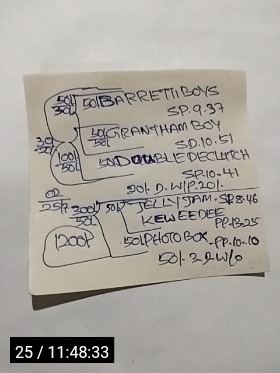 50/- 50/- BARRETTI BOYS
SP. 9.37
50/- GRANTHAM BOY
50/- SD. 10.51
100/- 50/- DOUBLE DECLUTCH
50/- SP. 10-41
20/- D. W/P. 20/-
02
25/7 200/- 50/- JELLY JAM - SP. 8-46
50/- KEWEEDEE
PP-13-25
1200/- 50/- PHOTO BOX - PP-10-10
50/- 3 D W/O
25 / 11:48:33